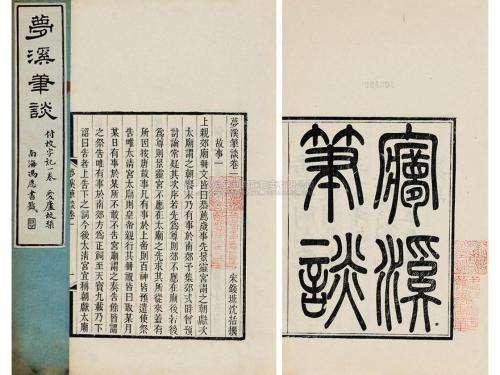 夢溪筆談
付校字記一卷
南海馮愿書籤
夢溪筆談卷一
宋錢塘沈括撰
故事一
上親郊廟冊文皆曰恭薦歲事先景靈宮謂之朝獻次
太廟謂之朝饗末乃有事於南郊予集郊式時曾預
討論常疑其次序若先為尊則郊不應在廟後若後
為尊則景靈宮不應在太廟之先求其所從來蓋有
所因按唐故事凡有事於上帝則百神皆預遣使祭
告唯太清宮太廟則皇帝親行其冊祝皆曰取某月
某日有事於某所不敢不告宮廟謂之奏告餘皆謂
之祭告唯有事於南郊方為正祠至天寶九載乃下
詔曰告者上告下之詞今後太清宮宜稱朝獻太廟
夢溪筆談卷一
㝱溪
筆談